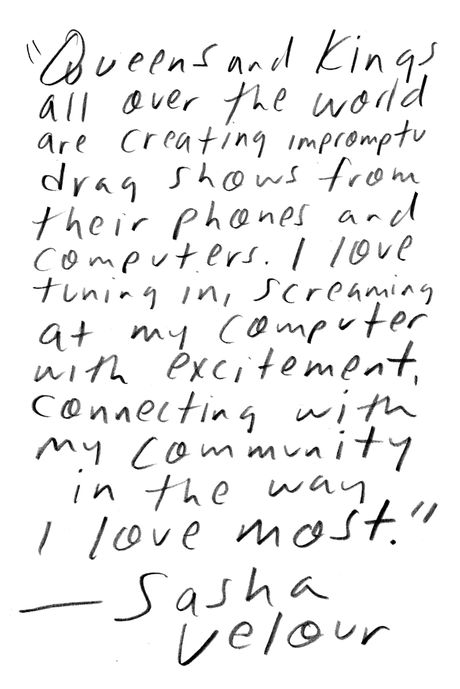 "Queens and Kings
all over the world
are creating impromptu
drag shows from
their phones and
computers. I love
tuning in, screaming
at my computer
with excitement,
connecting with
my community
in the way
I love most."
— Sasha
Velour